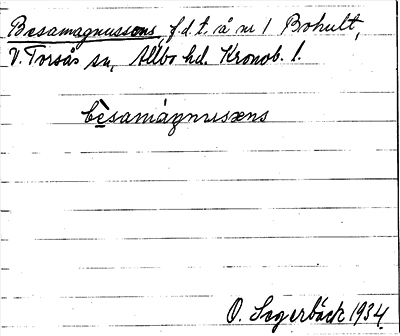 Besamagnussons, f.d.t. å nr 1 Bohult,
V. Torsås sn, Allbo hd. Kronob. l.
bèsamáŋnusæns
O. Segerbäck 1934